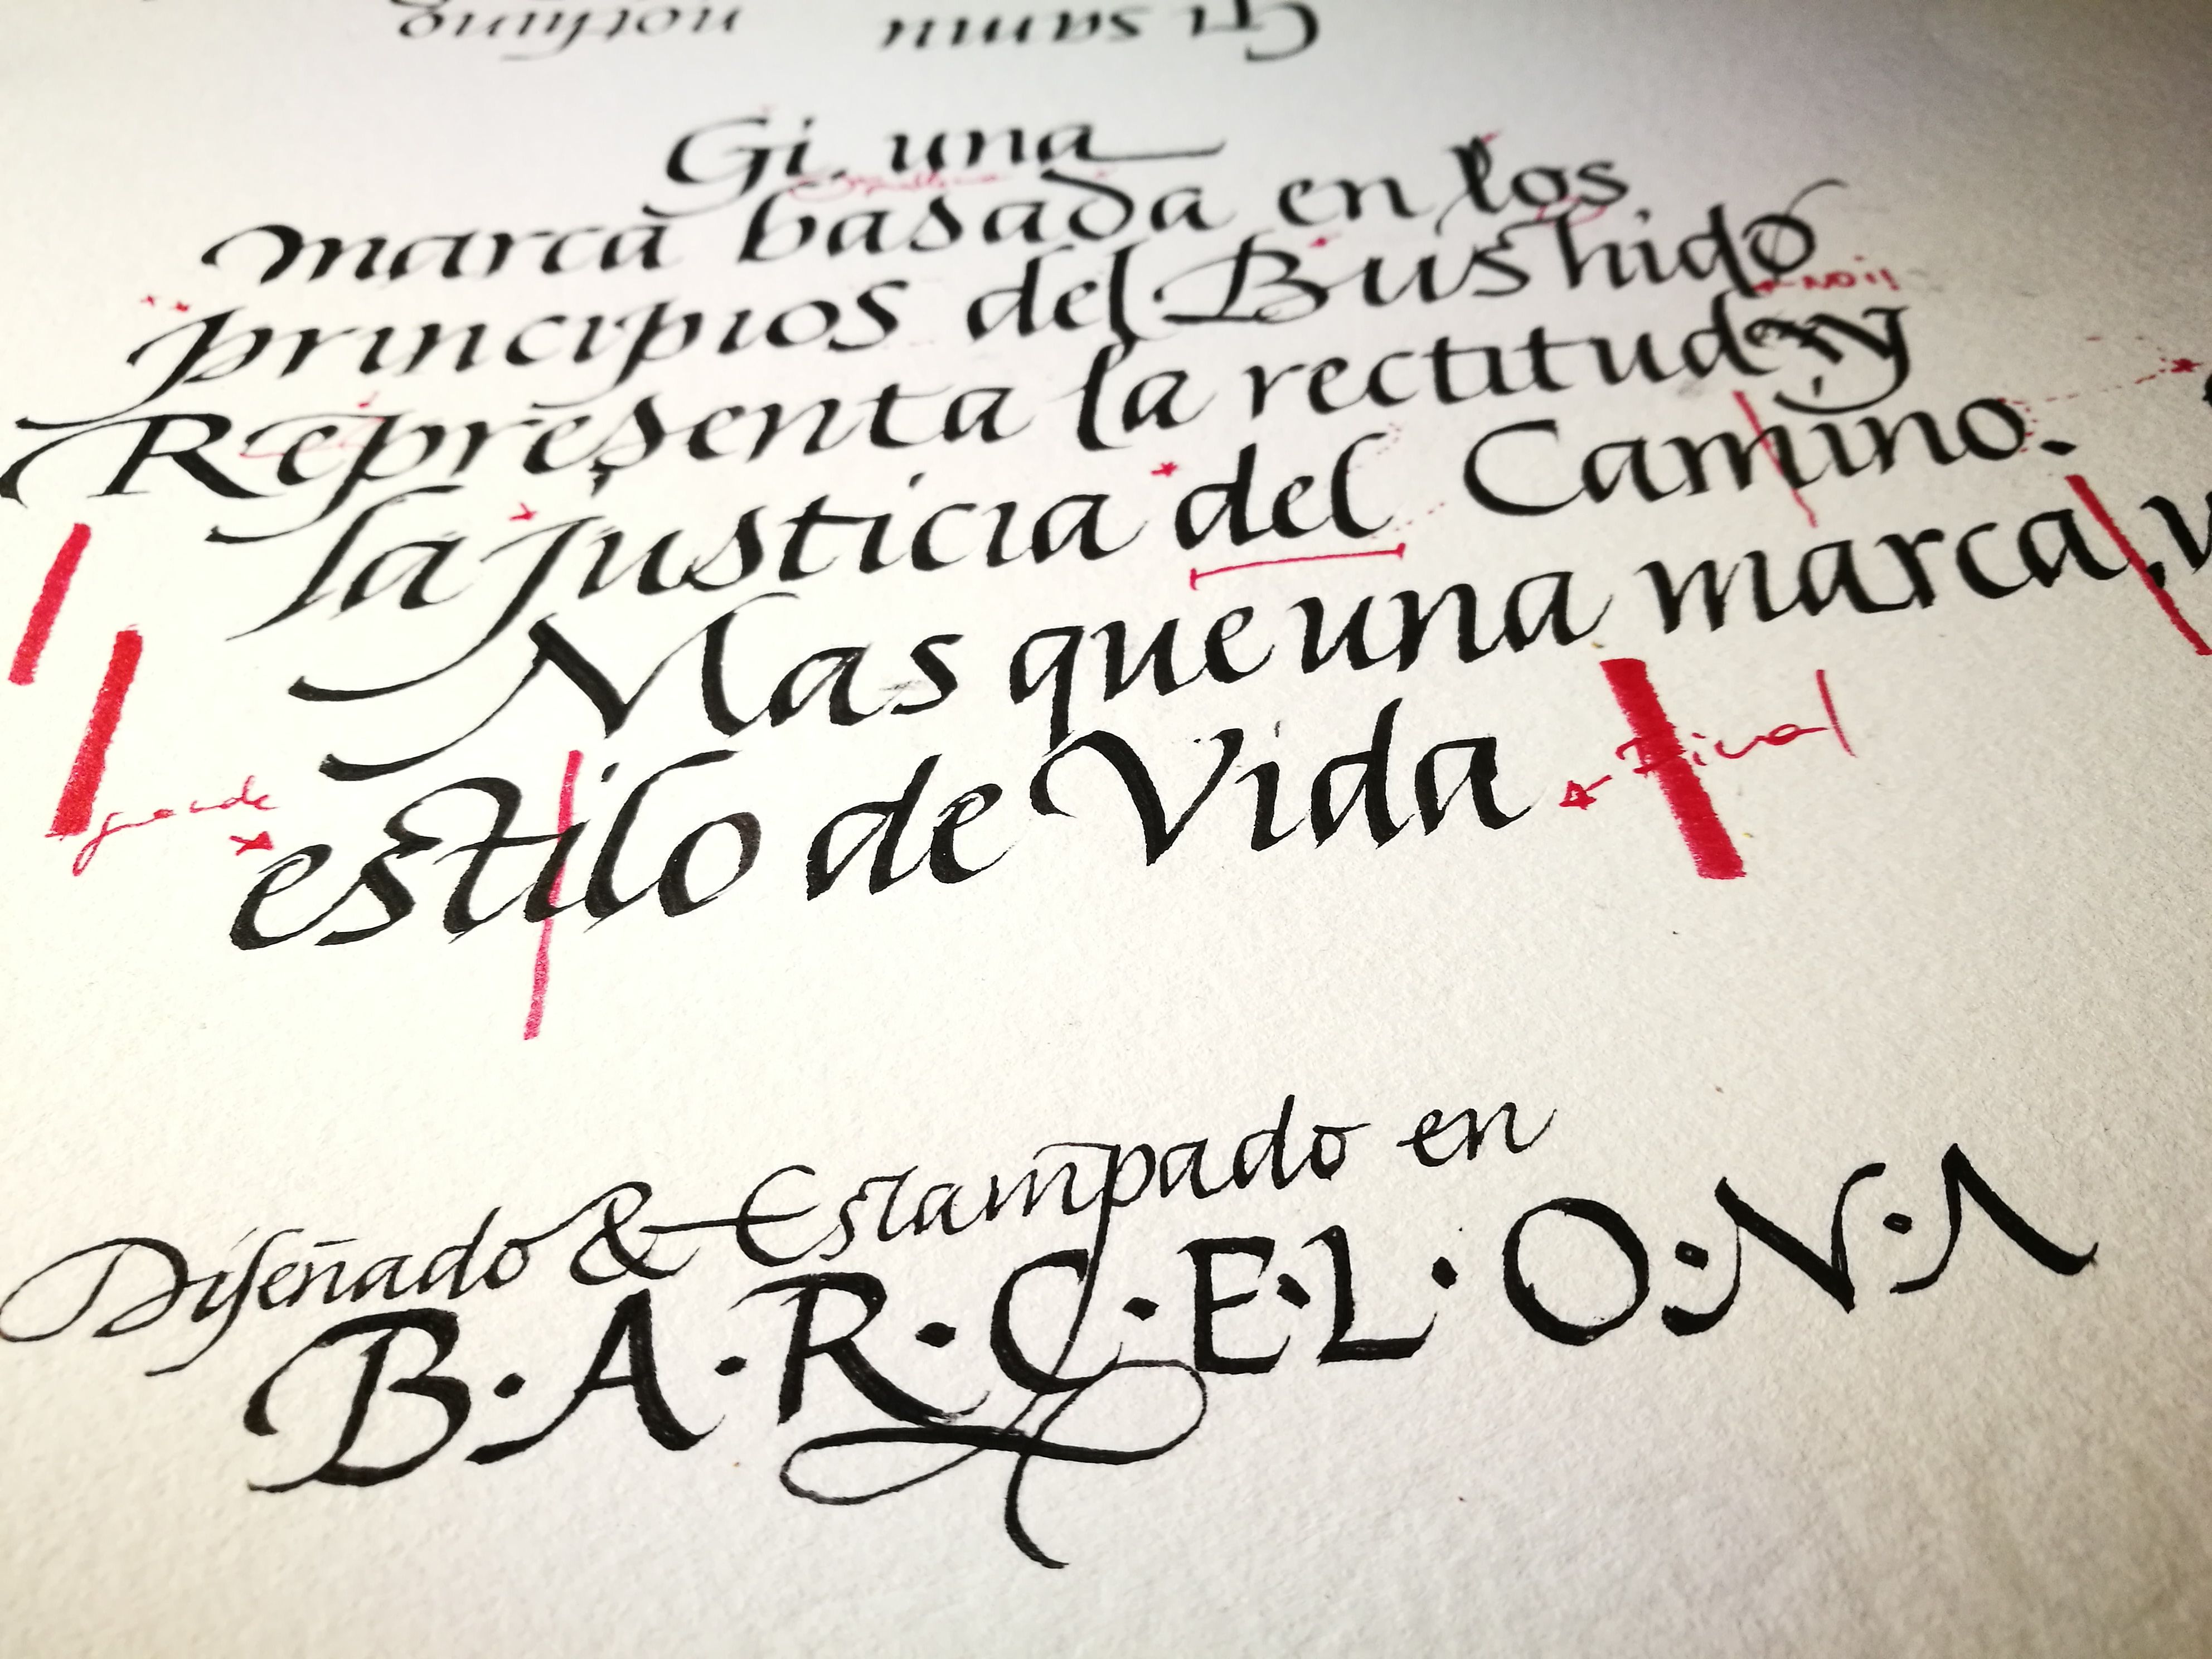 Gi. una
marca basada en los
principios del Bushido
Representa la rectitud y
la justicia del Camino.
Mas que una marca,
estilo de Vida
Final
Diseñado & Estampado en
B·A·R·C·E·L·O·N·A